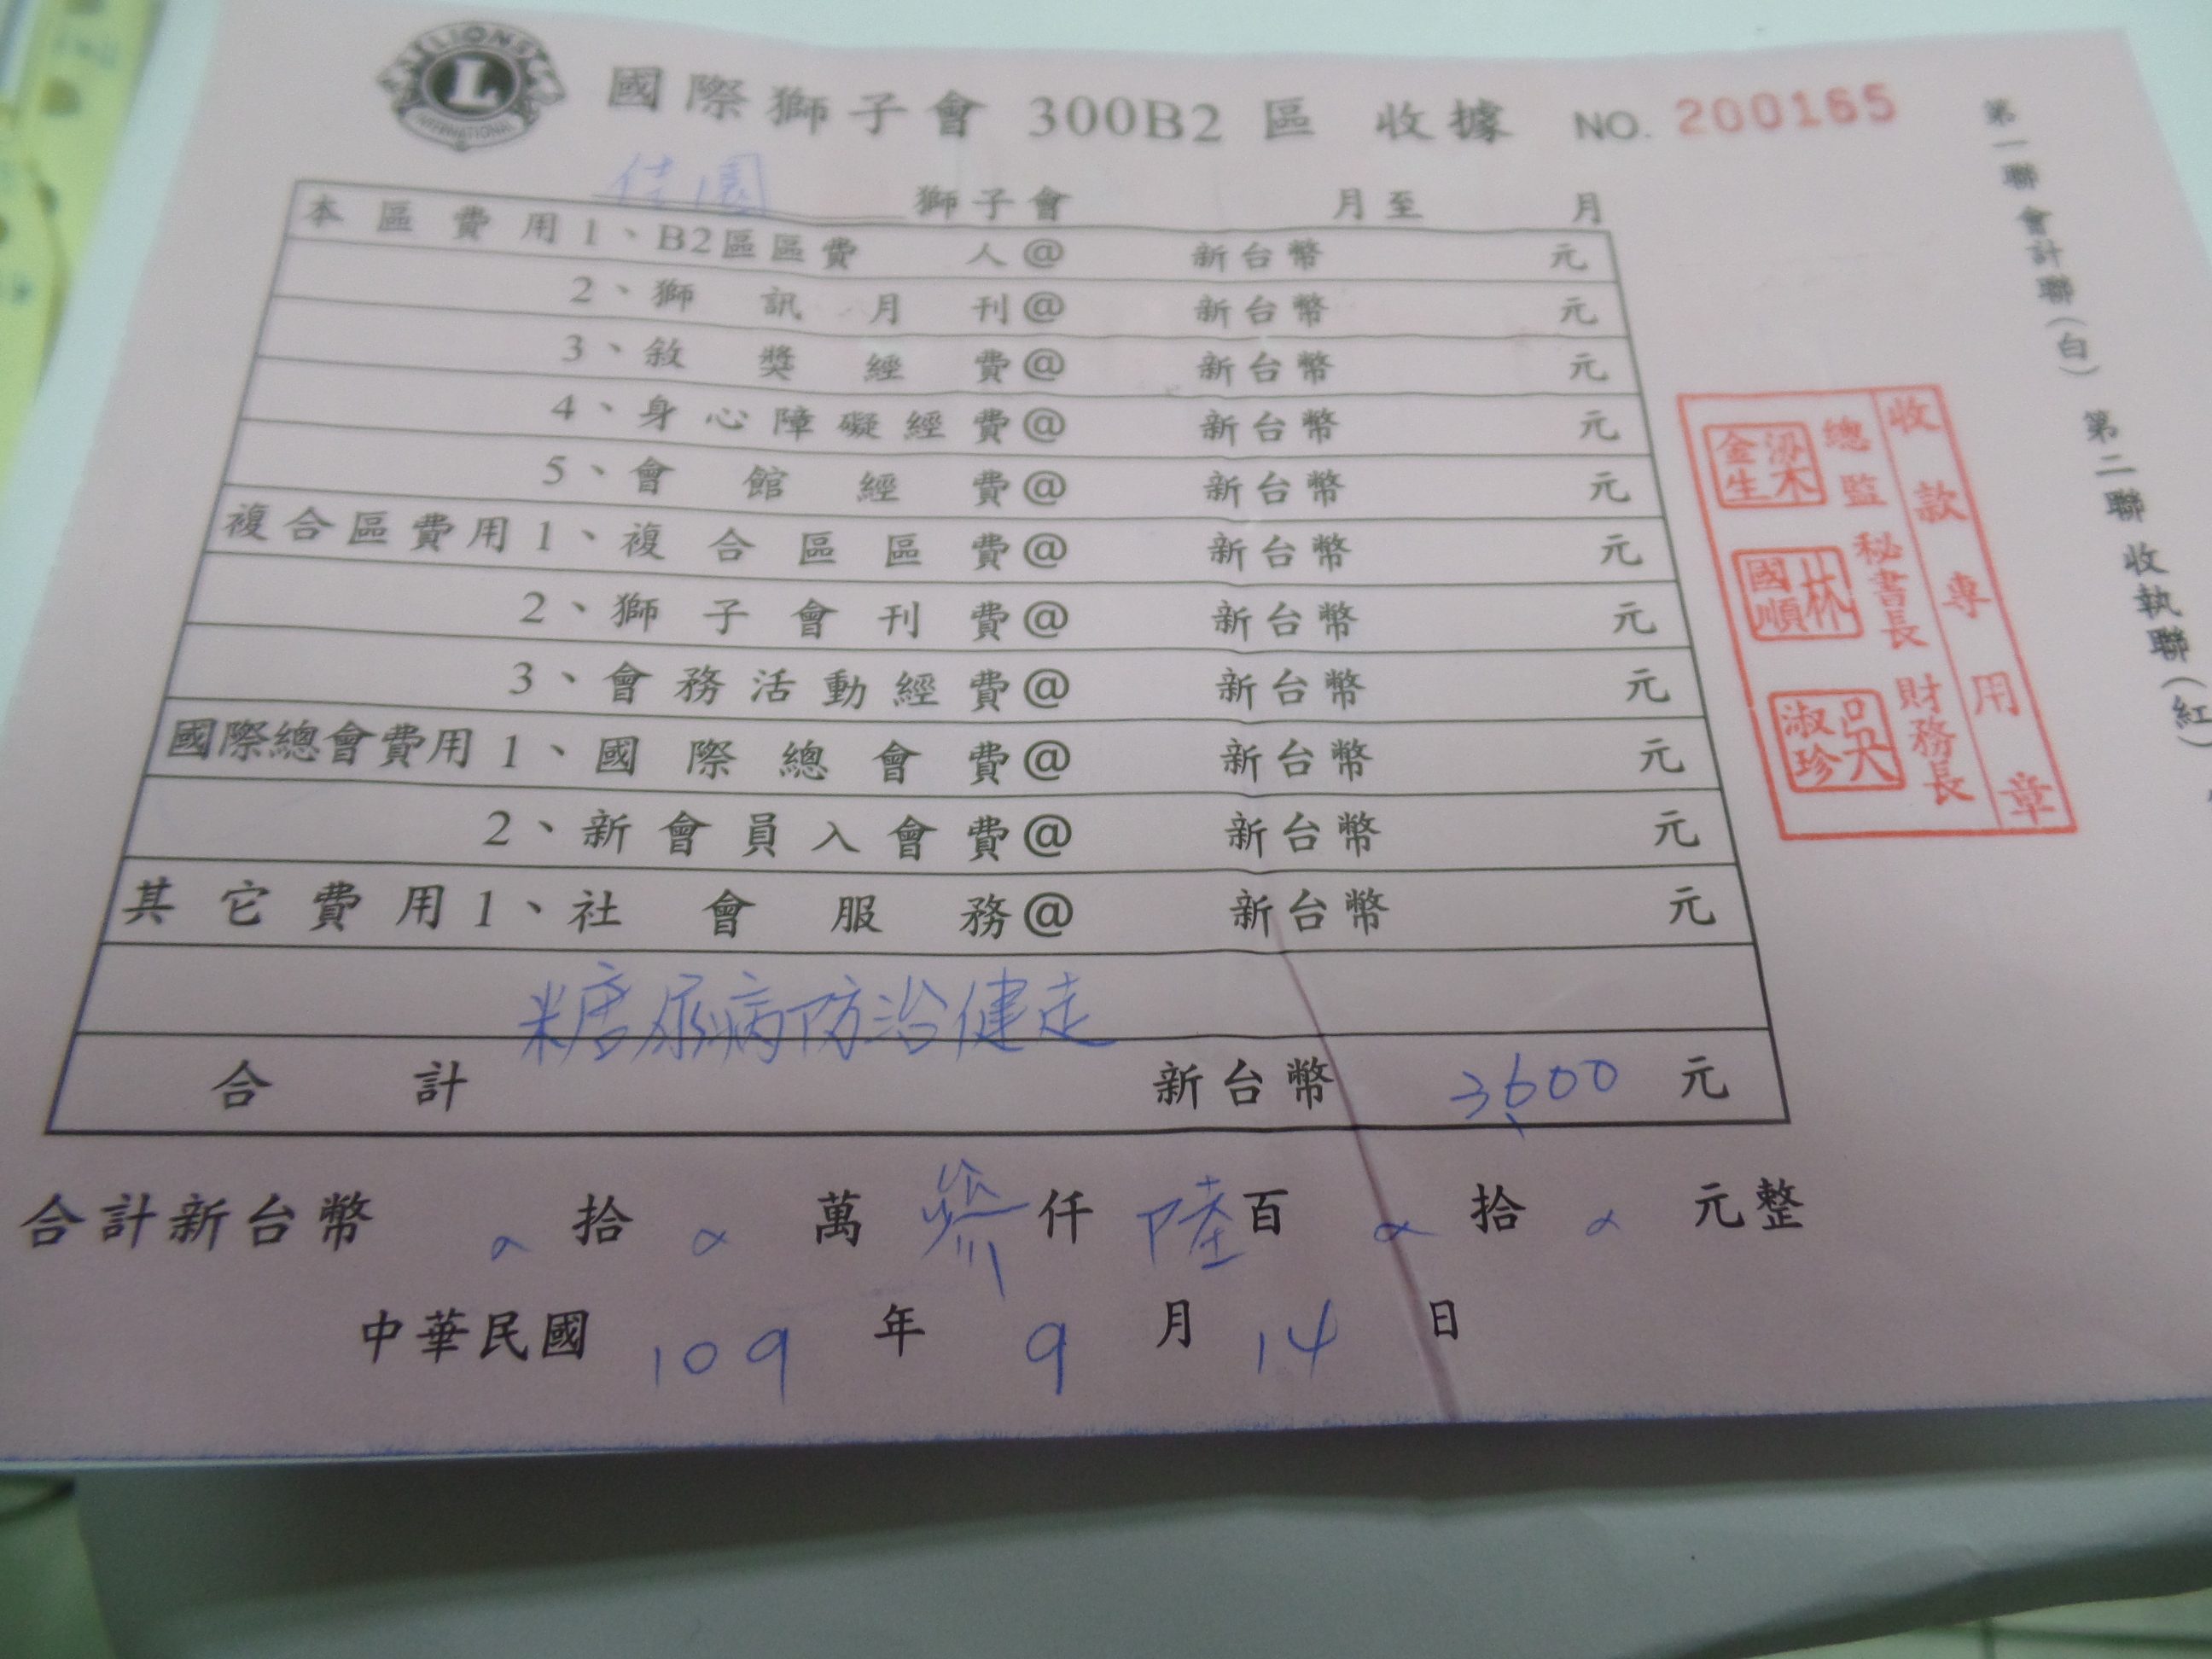 LIONS
L
INTERNATIONAL
國際獅子會 300B2 區 收據 NO. 200165
佳園 獅子會 月至 月
本區費用1、B2區區費 人@ 新台幣 元
2、獅訊月刊@ 新台幣 元
3、敘獎經費@ 新台幣 元
4、身心障礙經費@ 新台幣 元
5、會館經費@ 新台幣 元
複合區費用1、複合區區費@ 新台幣 元
2、獅子會刊費@ 新台幣 元
3、會務活動經費@ 新台幣 元
國際總會費用1、國際總會費@ 新台幣 元
2、新會員入會費@ 新台幣 元
其它費用1、社會服務@ 新台幣 元
糖尿病防治健走
合計 新台幣 3600 元
合計新台幣 拾 萬 參仟 陸百 拾 元整
中華民國 109 年 9 月 14 日
收款專用章
總監 梁金生
秘書長 林國順
財務長 吳淑珍
第一聯會計聯(白) 第二聯收執聯(紅)